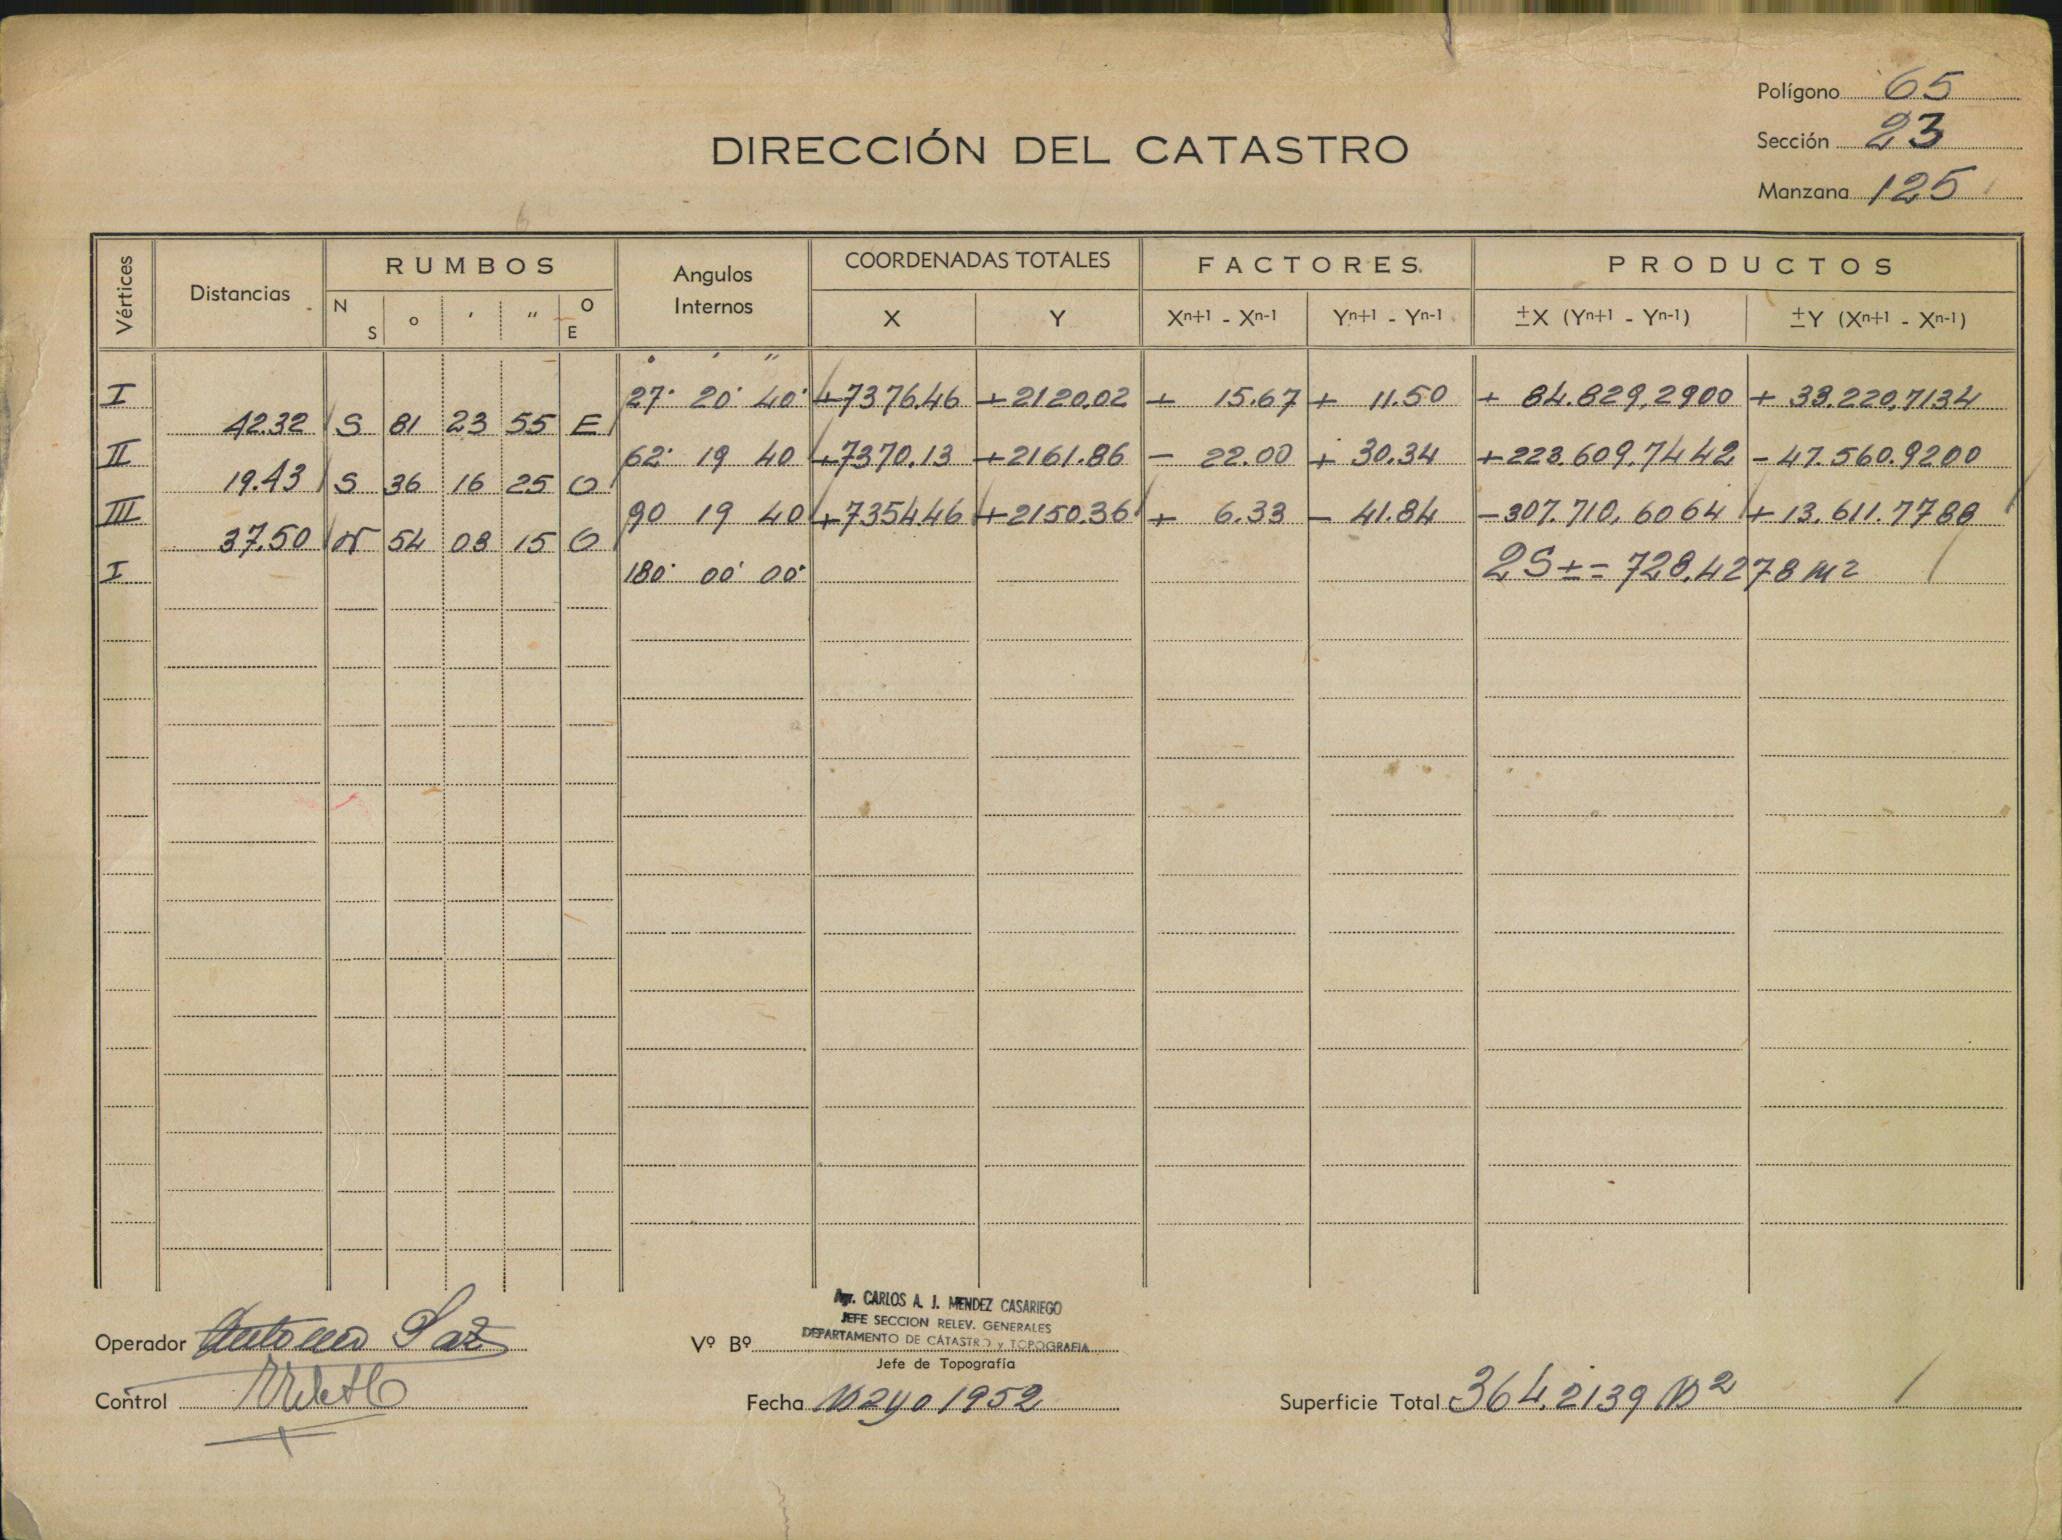 Polígono 65
DIRECCIÓN DEL CATASTRO
Sección 23
Manzana 125
Vértices Distancias RUMBOS Angulos Internos COORDENADAS TOTALES FACTORES PRODUCTOS
N S ° ' " O E X Y Xn+1 - Xn-1 Yn+1 - Yn-1 ±X (Yn+1 - Yn-1) ±Y (Xn+1 - Xn-1)
° ' "
I 27° 20' 40" +7376.46 +2120.02 + 15.67 + 11.50 + 84.829,2900 + 33.220,7134
42.32 S 81 23 55 E
II 62° 19 40 +7370.13 +2161.86 - 22.00 + 30.34 +223.609.7442 - 47.560.9200
19.43 S 36 16 25 O
III 90 19 40 +7354.46 +2150.36 + 6.33 - 41.84 -307.710,6064 + 13.611.7788
37.50 N 54 03 15 O
I 180° 00' 00" 2S ± = 728,4278 m2
Operador Antonio Saz
Agr. CARLOS A. J. MENDEZ CASARIEGO
JEFE SECCION RELEV. GENERALES
DEPARTAMENTO DE CATASTRO y TOPOGRAFIA
Vº Bº
Jefe de Topografía
Control
Fecha Mayo 1952
Superficie Total 364.2139 M2